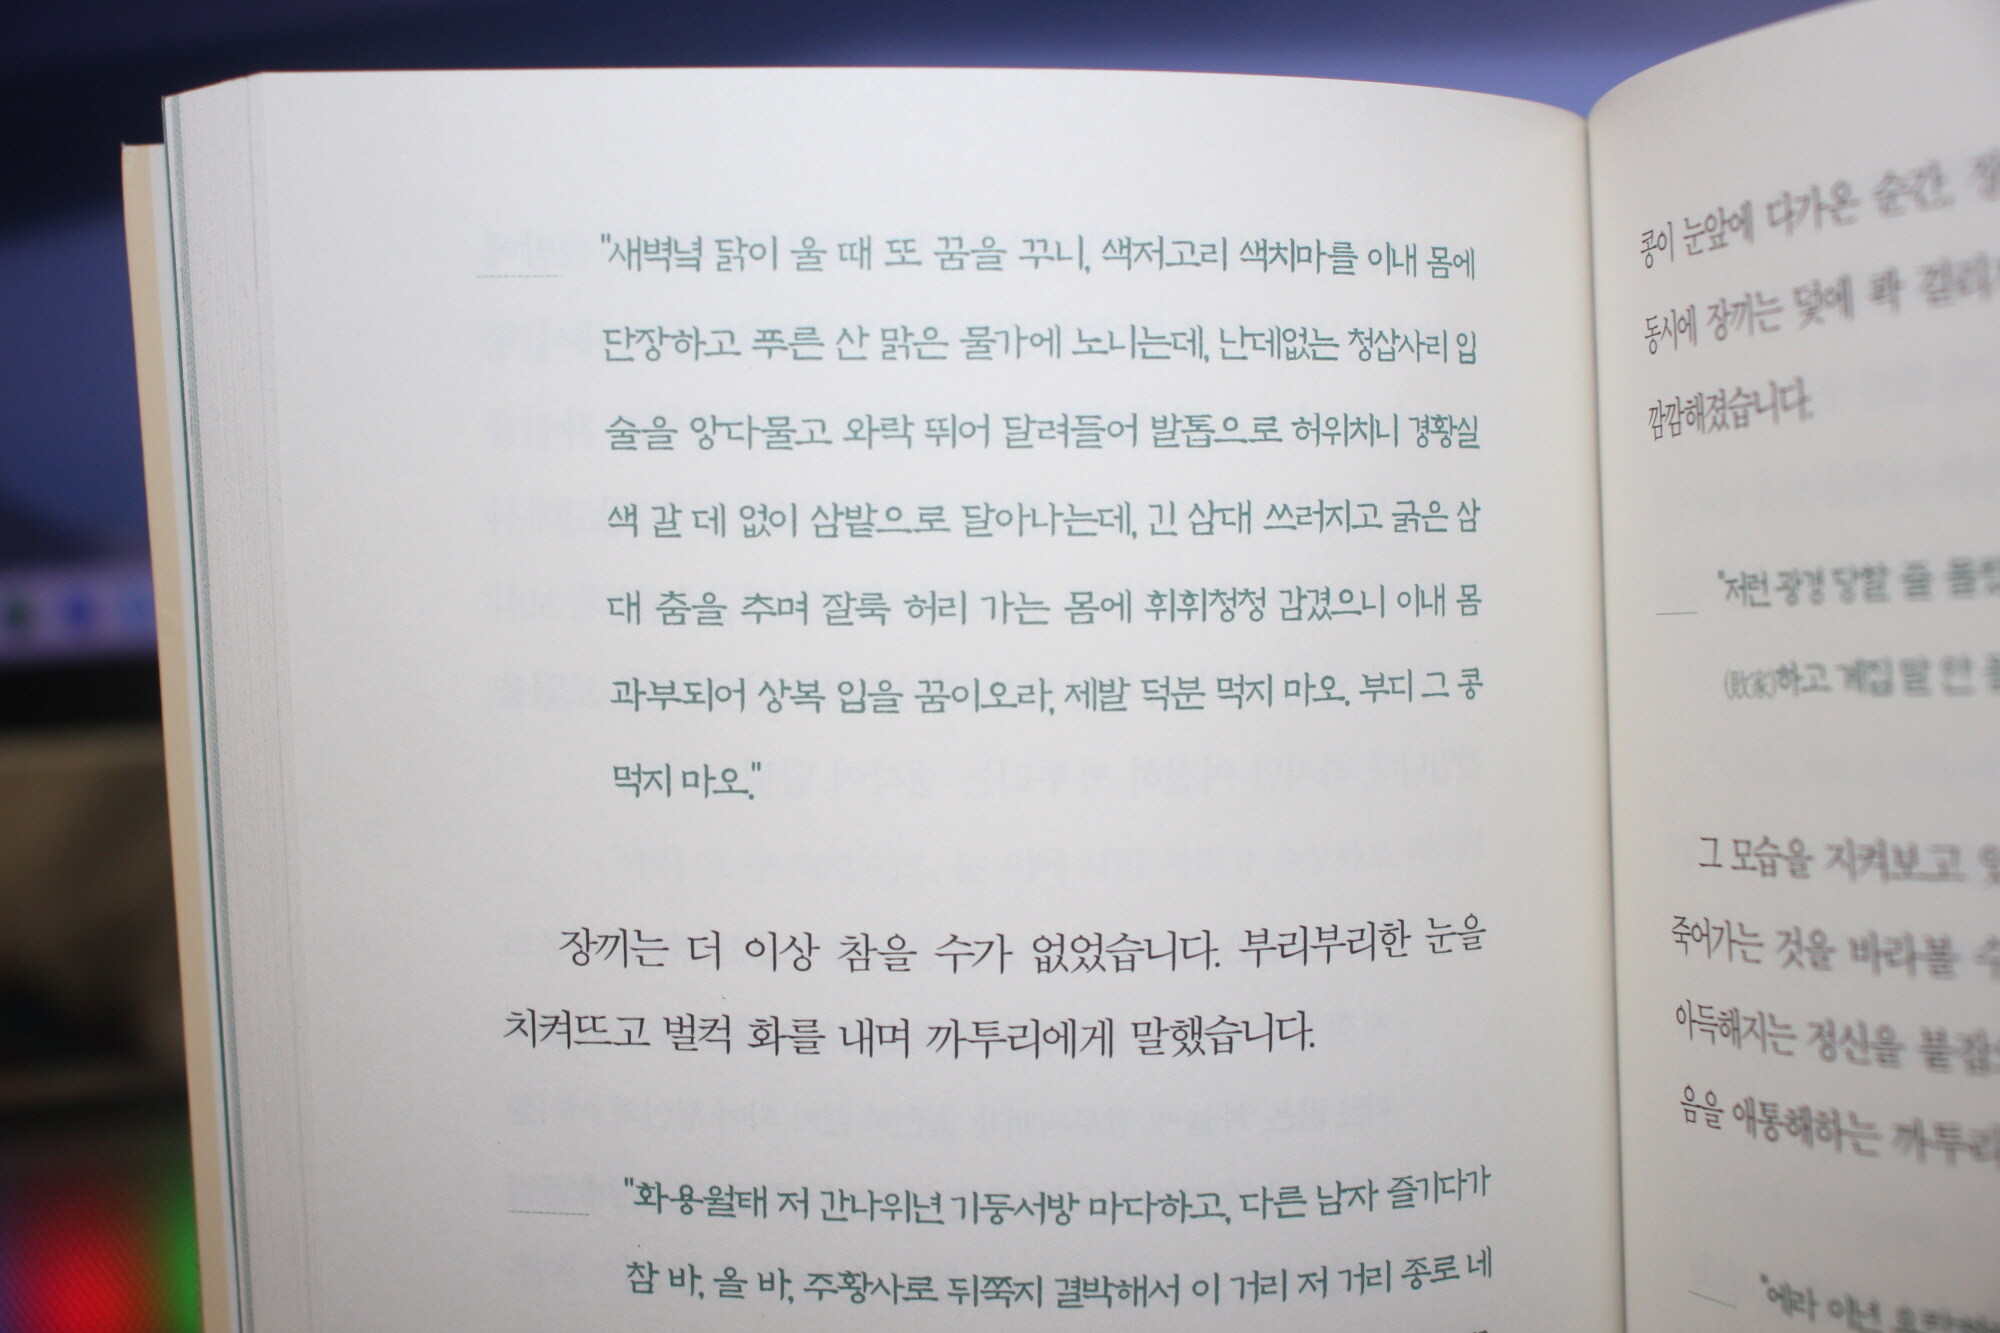 "새벽녘 닭이 울 때 또 꿈을 꾸니, 색저고리 색치마를 이내 몸에
단장하고 푸른 산 맑은 물가에 노니는데, 난데없는 청삽사리 입
술을 앙다물고 와락 뛰어 달려들어 발톱으로 허위치니 경황실
색 갈 데 없이 삼밭으로 달아나는데, 긴 삼대 쓰러지고 굵은 삼
대 춤을 추며 잘룩 허리 가는 몸에 휘휘청청 감겼으니 이내 몸
과부되어 상복 입을 꿈이오라, 제발 덕분 먹지 마오. 부디 그 콩
먹지 마오."
장끼는 더 이상 참을 수가 없었습니다. 부리부리한 눈을
치켜뜨고 벌컥 화를 내며 까투리에게 말했습니다.
"화용월태 저 간나위년 기둥서방 마다하고, 다른 남자 즐기다가
참 바, 올 바, 주황사로 뒤쭉지 결박해서 이 거리 저 거리 종로 네
콩이 눈앞에 다가온 순간,
동시에 장끼는 덫에 콱
깜깜해졌습니다.
"저런 광경 당할 줄
(敗家)하고 계집 말 안
그 모습을 지켜보고
죽어가는 것을 바라볼
아득해지는 정신을
음을 애통해하는 까투리
"에라 이년